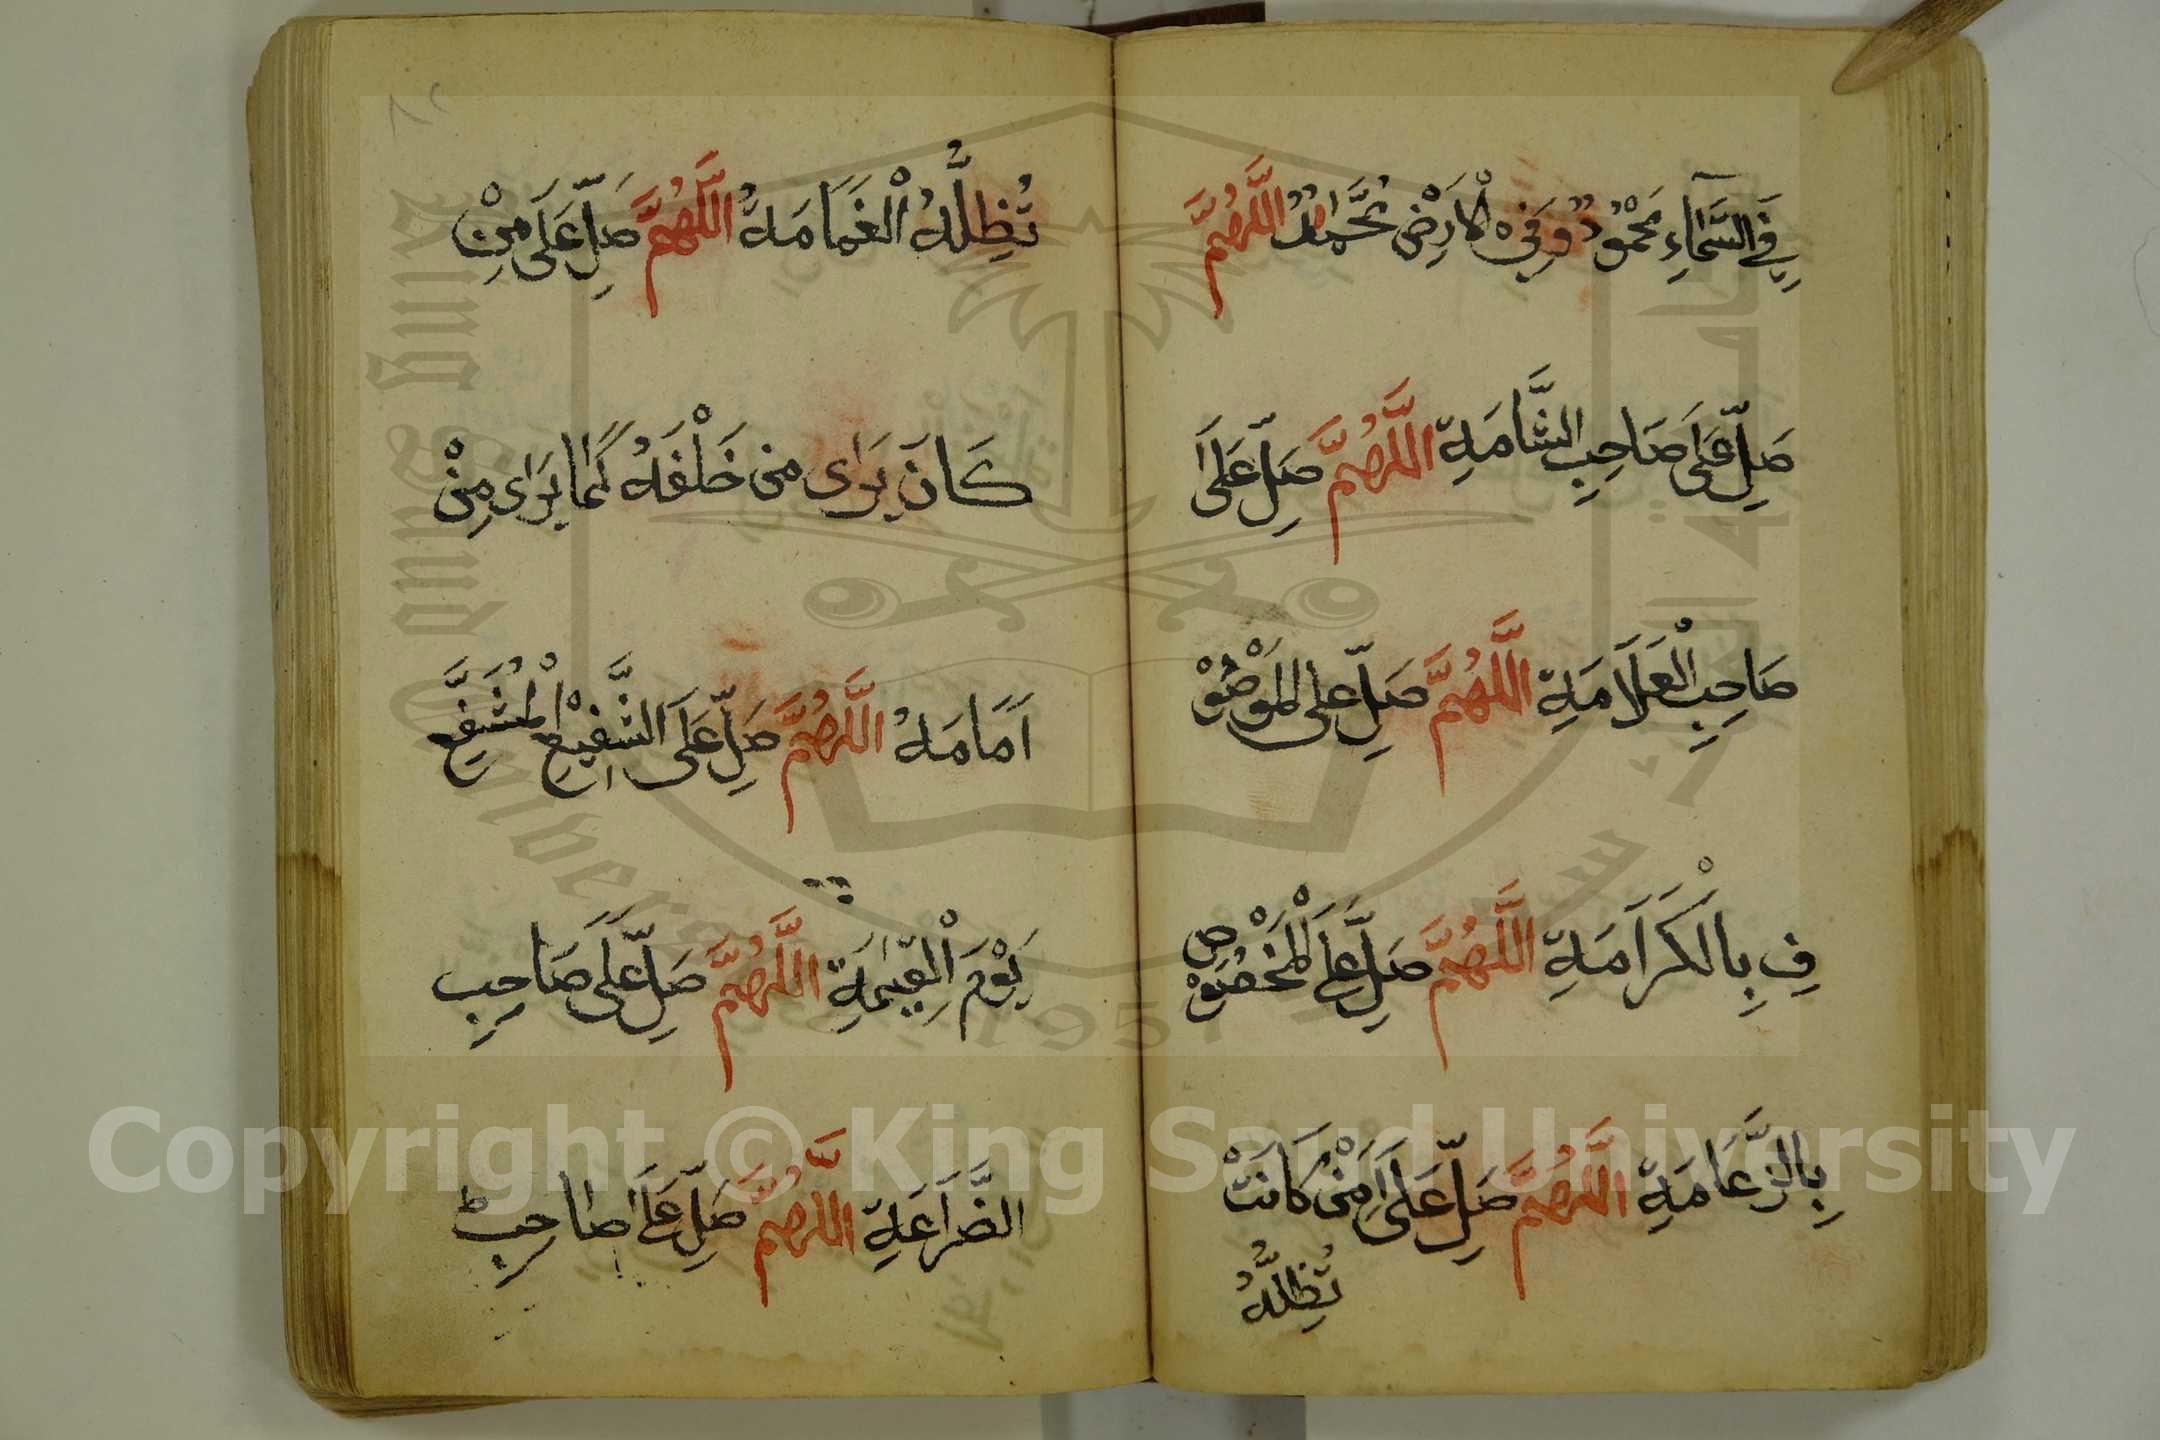 فِي السَّمَاءِ مَحْمُوْدٌ وَفِي الْاَرَضِ مُحَّمَدٌ اللَّهُمَّ
صَلِّ عَلَى صَاحِبِ الشَّامَةِ اللَّهُمَّ صَلِّ عَلَى
صَاحِبِ الْعَلَامَةِ اللَّهُمَّ صَلِّ عَلى الْمَوْضُوْ
فِ بِالْكَرَامَةِ اللَّهُمَّ صَلِّ عَلَى الْمَخْصُوْصِ
بِالزَّعَامَةِ اللَّهُمَّ صَلِّ عَلَى مَنْ كَانَتْ
تُظِلُّهُ
٨٢
تُظِلُّهُ الْغَمَامَةُ اللَّهُمَّ صَلِّ عَلَى مَنْ
كَانَ يَرَاى من خَلْفَهُ كَمَا يَرَاى مِنْ
اَمَامَهُ اللَّهُمَّ صَلِّ عَلَى الشَّفِيْعِ الْمُشَفَّعِ
يَوْمَ الْقِيٰمَةِ اللَّهُمَّ صَلِّ عَلَى صَاحِبِ
الضَّرَاعَةِ اللَّهُمَّ صَلِّ عَلَى صَاحِبِ
King Saud University
1957
Copyright © King Saud University